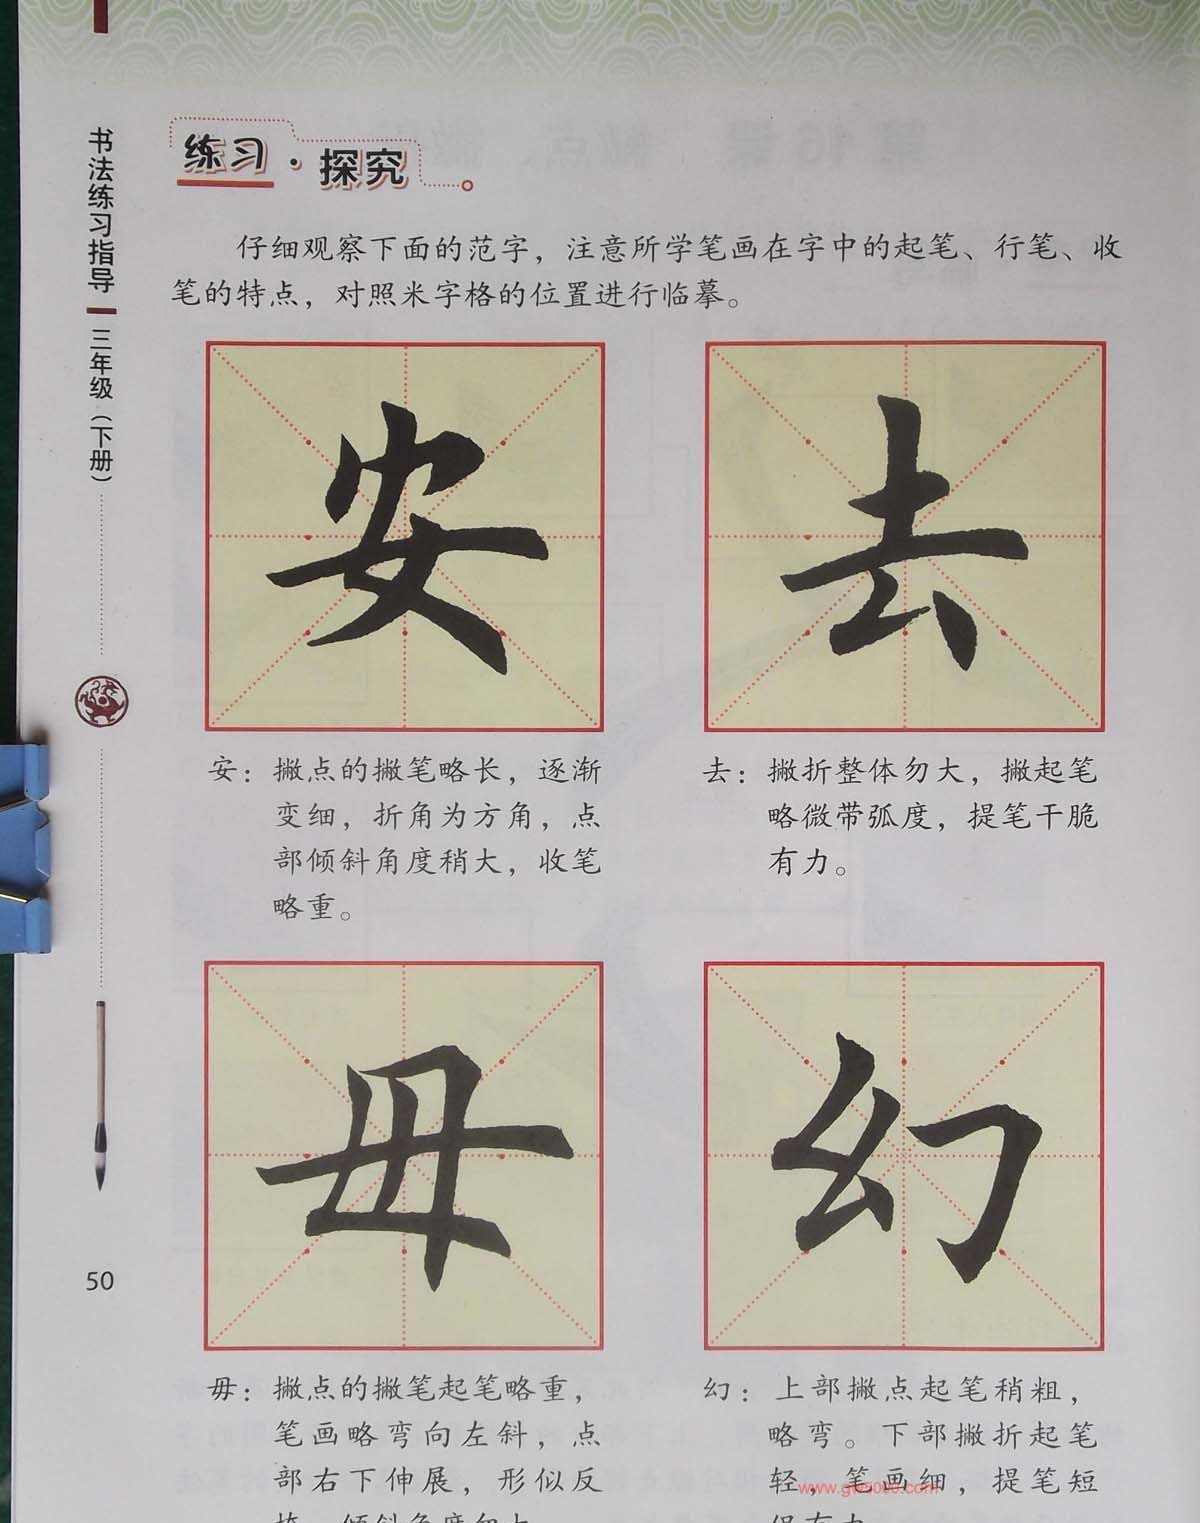 书法练习指导
三年级（下册）
练习·探究
仔细观察下面的范字，注意所学笔画在字中的起笔、行笔、收
笔的特点，对照米字格的位置进行临摹。
安
去
安：撇点的撇笔略长，逐渐
变细，折角为方角，点
部倾斜角度稍大，收笔
略重。
去：撇折整体勿大，撇起笔
略微带弧度，提笔干脆
有力。
毋
幻
毋：撇点的撇笔起笔略重，
笔画略弯向左斜，点
部右下伸展，形似反
幻：上部撇点起笔稍粗，
略弯。下部撇折起笔
轻，笔画细，提笔短
50